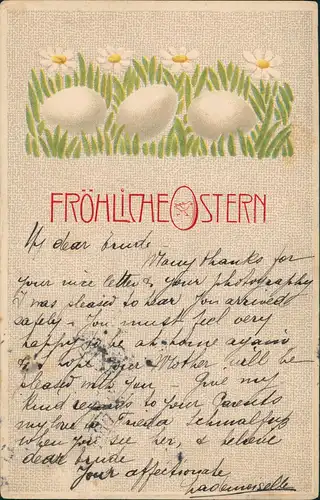 FRÖHLICHE OSTERN
My dear
Many thanks for
your nice letter & your photography
I was pleased to hear you arrived
safely - You must feel very
happy to be at home again
& I hope your Mother will be
pleased with you - Give my
kind regards to your Parents
my love to Frieda Schmalfuß
when you see her, & believe
dear
Your affectionate
Mademoiselle